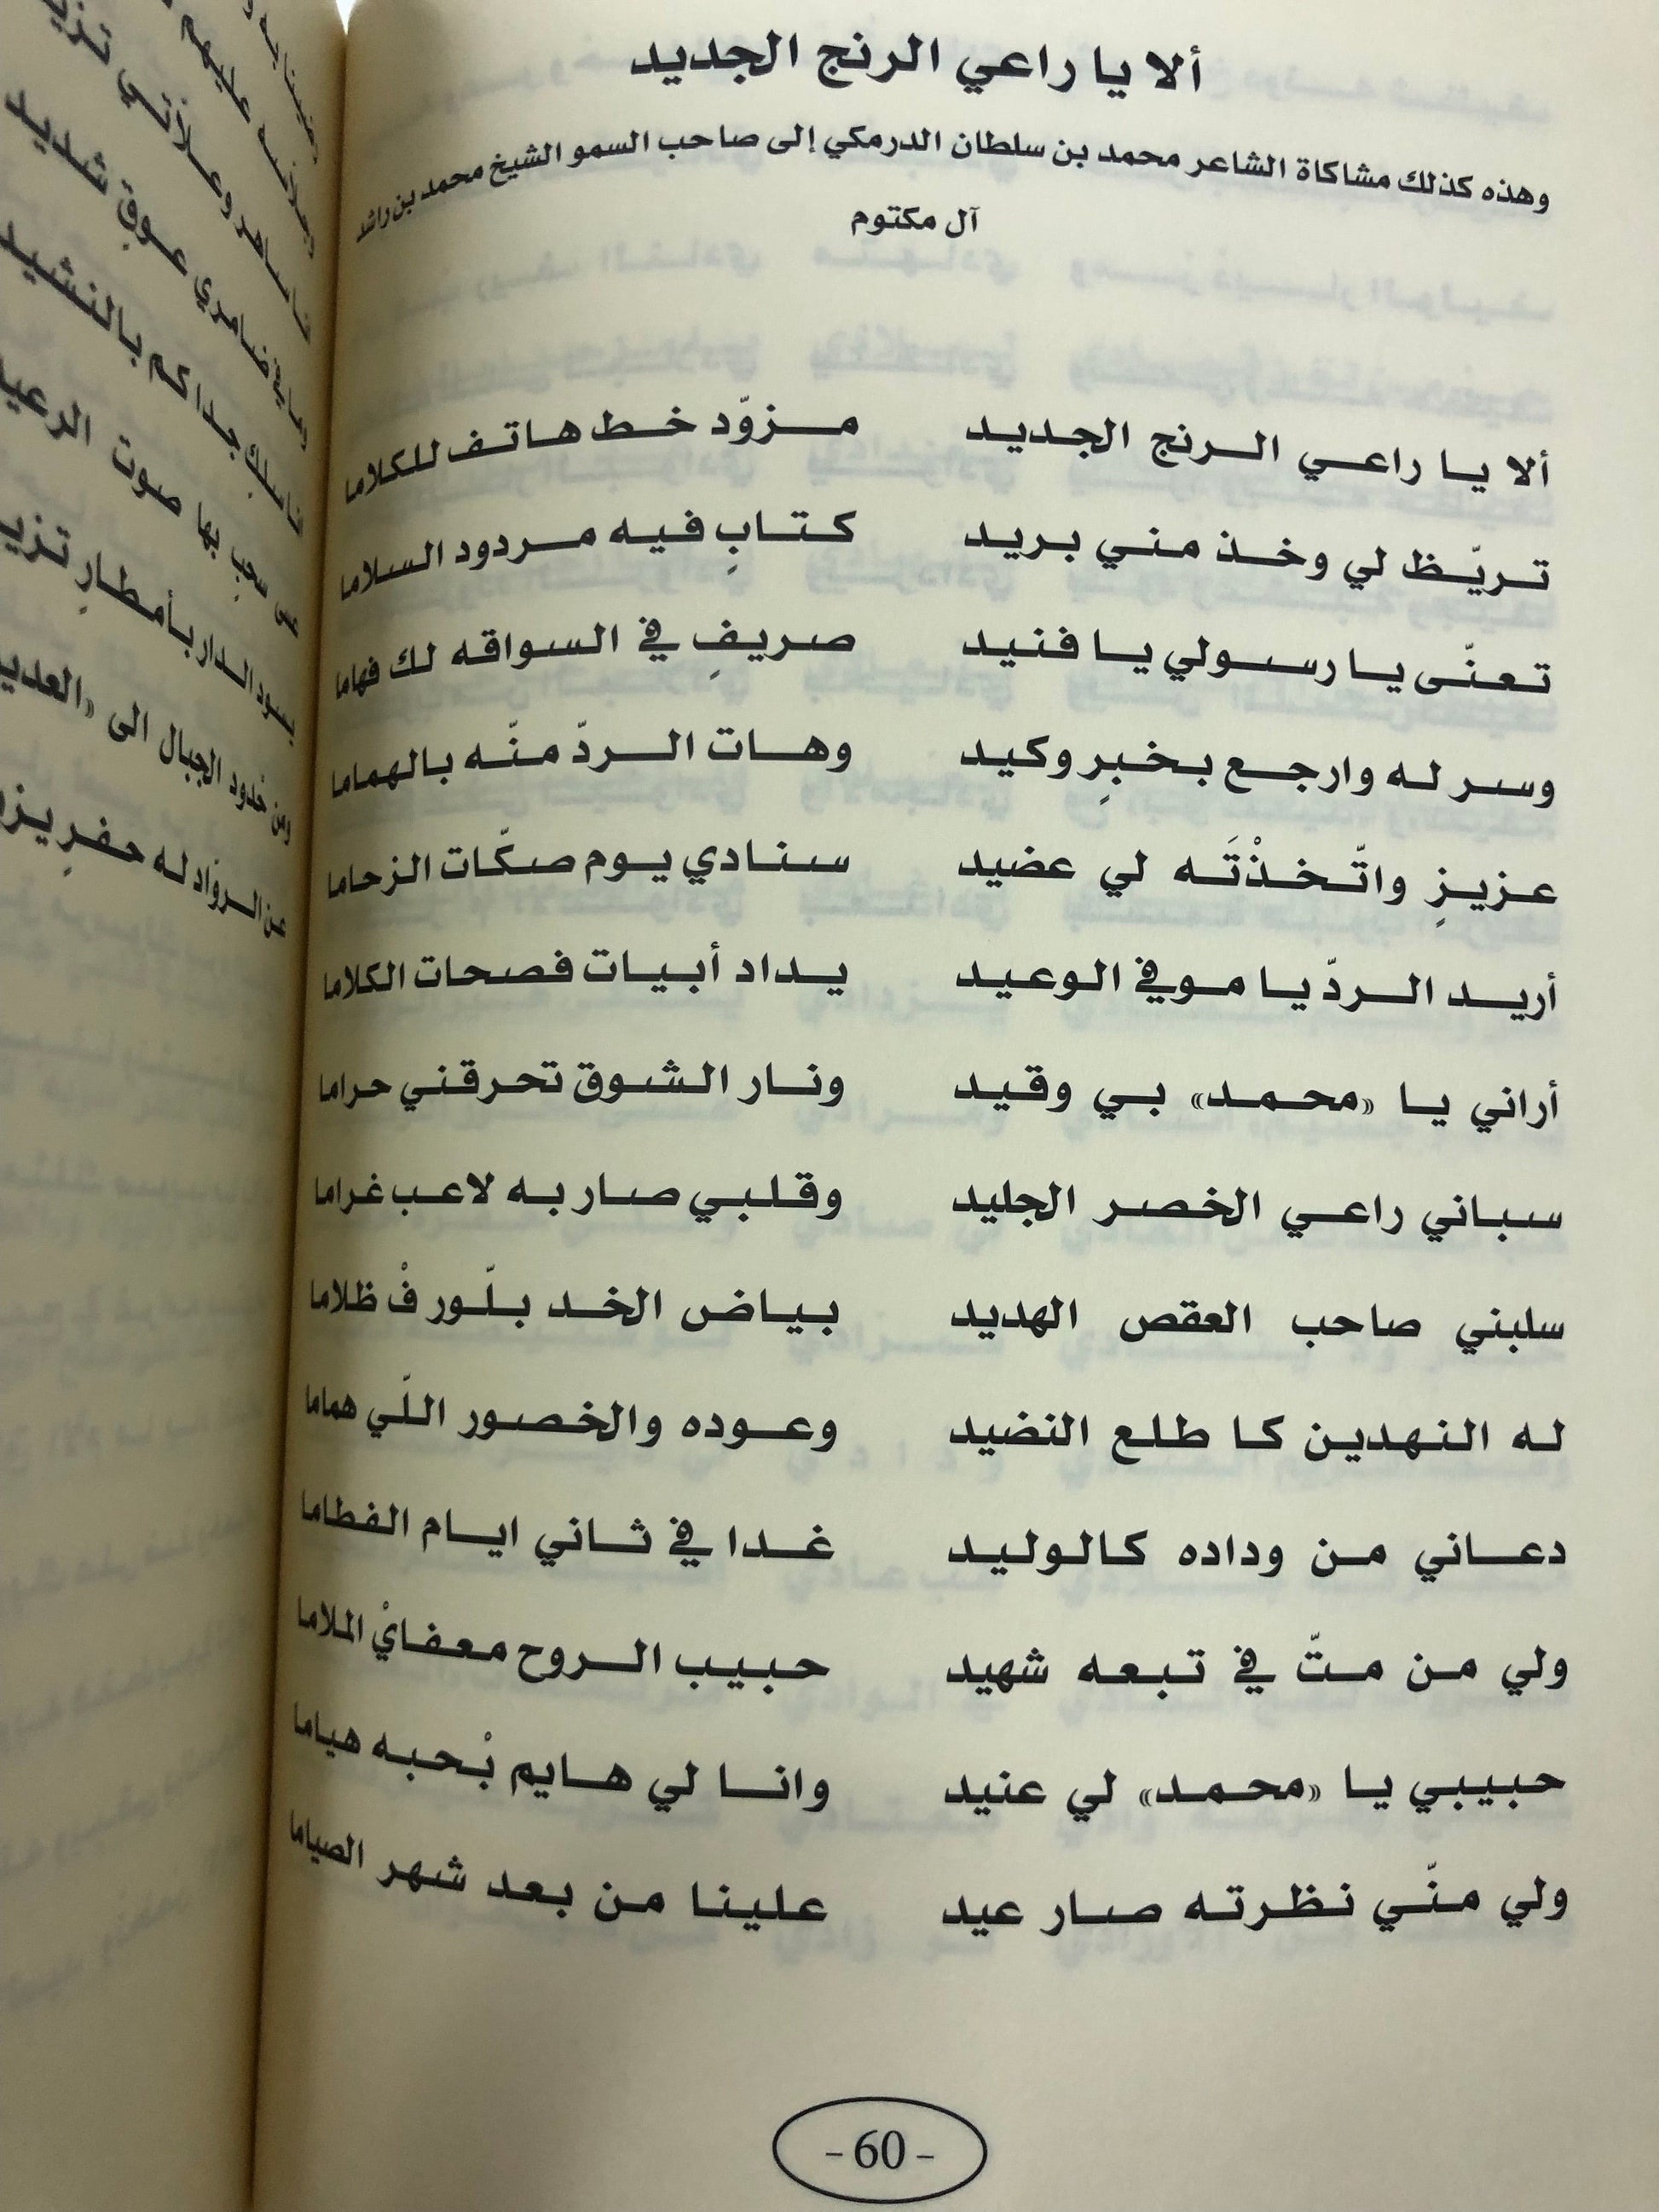 ألا يا راعي الرنج الجديد
وهذه كذلك مشاكاة الشاعر محمد بن سلطان الدرمكي إلى صاحب السمو الشيخ محمد بن راشد
آل مكتوم
ألا يا راعي الرنج الجديد مزوّد خط هاتف للكلاما
تريّظ لي وخذ مني بريد كتابٍ فيه مردود السلاما
تعنّى يا رسولي يا فنيد صريفٍ في السواقه لك فهاما
وسر له وارجع بخبرٍ وكيد وهات الردّ منّه بالهماما
عزيزٍ واتّخذْتَه لي عضيد سنادي يوم صكّات الزحاما
أريد الردّ يا موفي الوعيد يداد أبيات فصحات الكلاما
أراني يا «محمد» بي وقيد ونار الشوق تحرقني حراما
سباني راعي الخصر الجليد وقلبي صار به لاعب غراما
سلبني صاحب العقص الهديد بياض الخد بلّور فْ ظلاما
له النهدين كا طلع النضيد وعوده والخصور اللّي هماما
دعاني من وداده كالوليد غدا في ثاني ايام الفطاما
ولي من متّ في تبعه شهيد حبيب الروح معفايْ الملاما
حبيبي يا «محمد» لي عنيد وانا لي هايم بْحبه هياما
ولي منّي نظرته صار عيد علينا من بعد شهر الصياما
- 60 -
تزيد
شديد
عوقٍ
ضامري
جداكم بالنشيد
بها صوت الرعيد
الدار بأمطارٍ تزيد
الجبال الى «العديد
عن الروّاد له حفرٍ